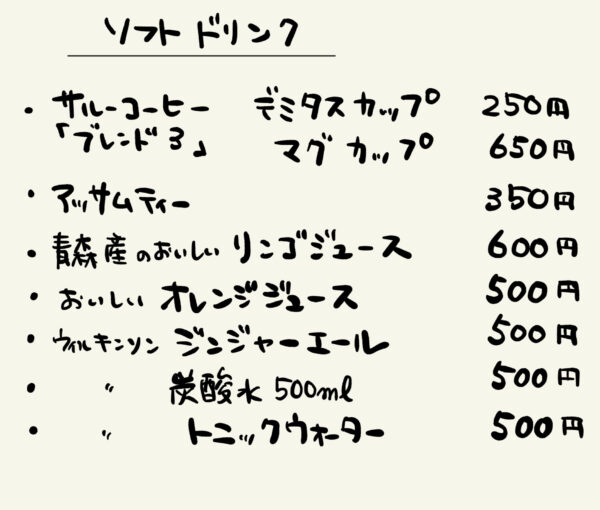 ソフトドリンク
・サルーコーヒー デミタスカップ 250円
「ブレンド3」 マグカップ 650円
・アッサムティー 350円
・青森産のおいしいリンゴジュース 600円
・おいしいオレンジジュース 500円
・ウィルキンソン ジンジャーエール 500円
・〃 炭酸水 500ml 500円
・〃 トニックウォーター 500円